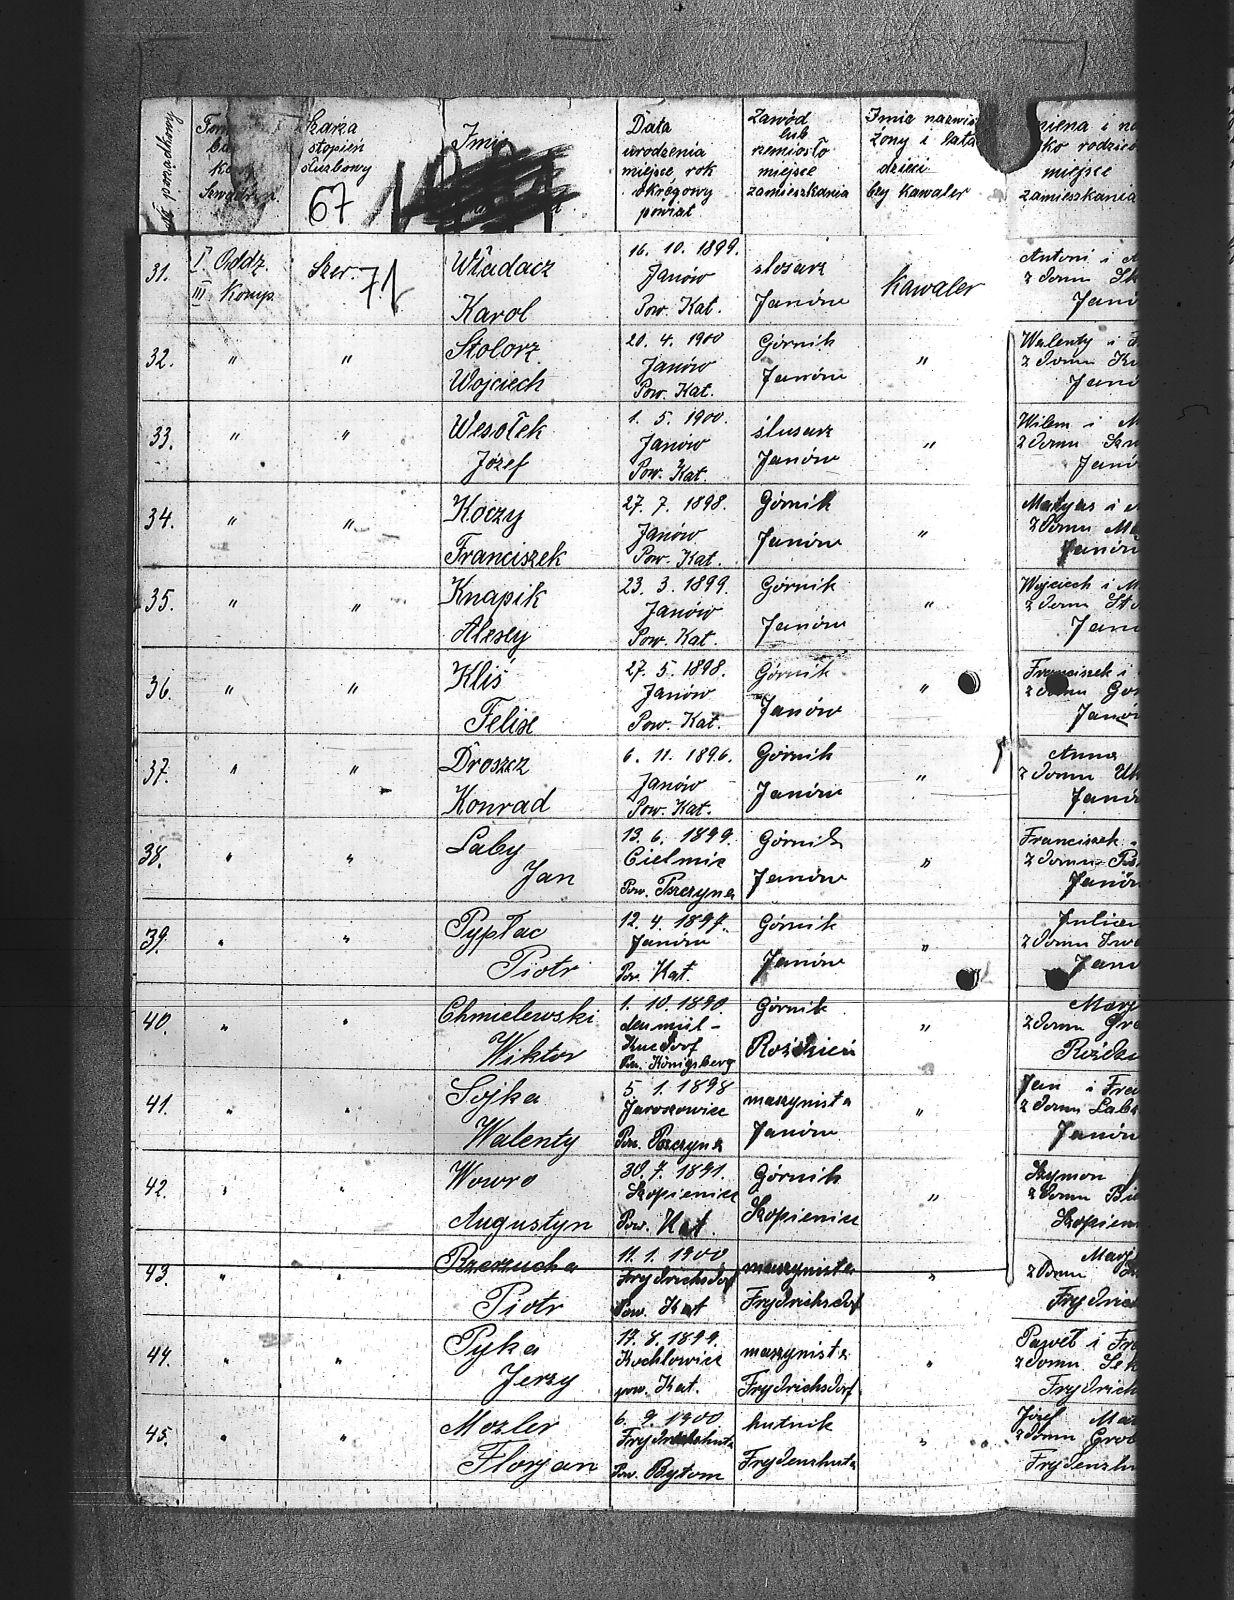 porządkowy
Szarża
stopień
służbowy
67
Data
urodzenia
miejsce, rok
okręgowy
powiat
Zawód
lub
rzemiosło
miejsce
zamieszkania
Imię nazwis
żony i lata
dzieci
bez kawaler
miejsce
zamieszkania
31. I Oddz. III Komp. Szer. 71 Władacz Karol 16. 10. 1899. Janów Pow. Kat. slosarz Janów kawaler Antoni i z domu Janó
32. " " Stolorz Wojciech 20. 4. 1900 Janów Pow. Kat. Górnik Janów " Walenty i z domu Janó
33. " " Wesołek Józef 1. 5. 1900. Janów Pow. Kat. ślusarz Janów " Wilem i M z domu Janó
34. " " Koczy Franciszek 27. 7. 1898. Janów Pow. Kat. Górnik Janów " Matyas i z domu Janów
35. " " Knapik Alesey 23. 3. 1899. Janów Pow. Kat. Górnik Janów " Wojciech i M z domu Jan
36. " " Kliś Felix 27. 5. 1898. Janów Pow. Kat. Górnik Janów " Franciszek i z domu Janó
37. " " Droszcz Konrad 6. 11. 1896. Janów Pow. Kat. Górnik Janów " Anna z domu Janó
38. " " Laby Jan 13. 6. 1899. Cielmic Pow. Pszczyna Górnik Janów " Franciszek z domu Janów
39. " " Pypłac Piotr 12. 4. 1897. Janów Pow. Kat. Górnik Janów " z domu Jan
40. " " Chmielewski Wiktor 1. 10. 1890. Pow. Königsberg Górnik Roździeń " z domu
41. " " Sojka Walenty 5. 1. 1898 Jaroszowice Pow. Pszczyna maszynista Janów " Jan i z domu Janów
42. " " Wowro Augustyn 30. 7. 1891. Szopienice Pow. Kat. Górnik Szopienice " Szymon z domu Szopien
43. " " Rzerzucha Piotr 11. 1. 1900 Frydrichsdorf Pow. Kat maszynista Frydrichsdorf " z domu Frydric
44. " " Pyka Jerzy 17. 8. 1899. Kochłowice pow. Kat. maszynista Frydrichsdorf " Paweł i z domu Frydrich
45. " " Mozler Florjan 6. 9. 1900 Pow. Bytom hutnik Frydenshuta " Józef z domu Frydenshu